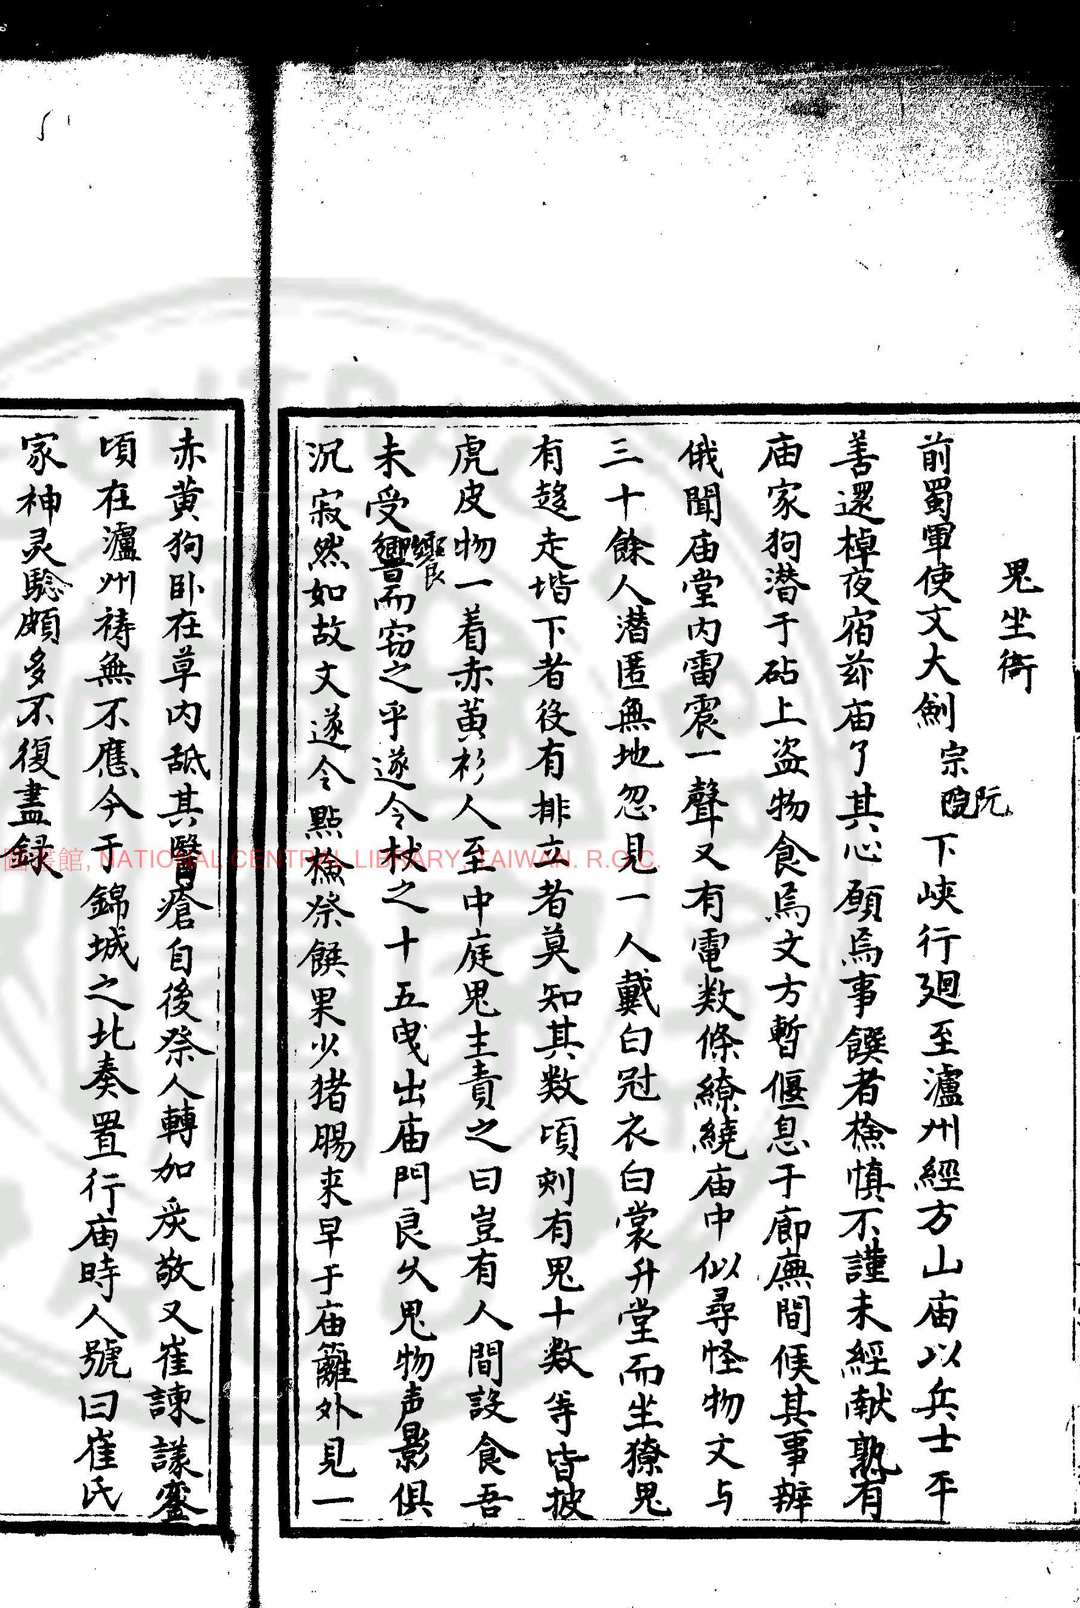 鬼坐衙
前蜀軍使文大劍宗阮下峽行廻至瀘州經方山庙以兵士平
善還棹夜宿茲庙了其心願焉事饌者檢慎不謹未經献熟有
庙家狗潜于砧上盗物食焉文方暫偃息于廊廡間候其事辦
俄聞庙堂内雷震一聲又有電数條繚繞庙中似尋怪物文与
三十餘人潜匿無地忽見一人戴白冠衣白裳升堂而坐獠鬼
有趍走堦下者役有排立者莫知其数頃刻有鬼十数等皆披
虎皮物一着赤黄衫人至中庭鬼主責之曰豈有人間設食吾
未受響饗而窃之乎遂令杖之十五曳出庙門良久鬼物声影俱
沉寂然如故文遂令點檢祭饌果少猪腸来早于庙籬外見一
赤黄狗卧在草内舐其臀瘡自後祭人轉加炭敬又崔諫議蜜
頃在瀘州祷無不應今于錦城之北奏置行庙時人號曰崔氏
家神灵驗頗多不復盡録
圖書館, NATIONAL CENTRAL LIBRARY, TAIWAN. R.O.C.